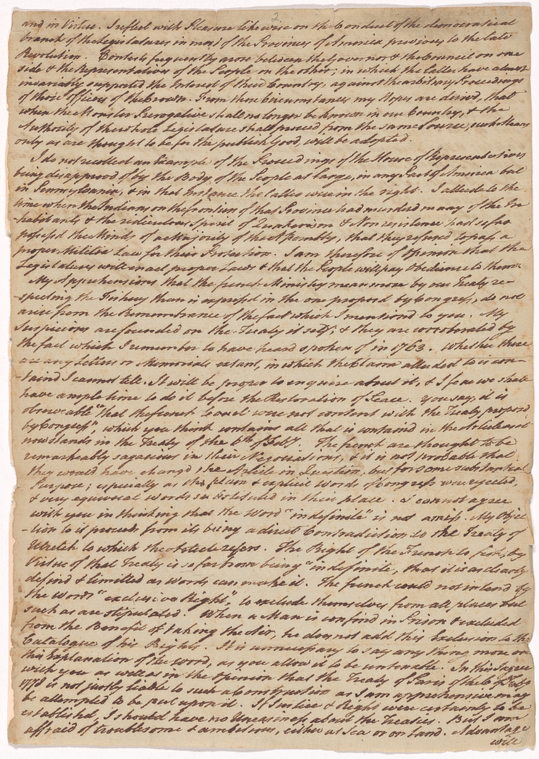 2
and in Virtue. I reflect with Pleasure likewise on the Conduct of the democratical
branch of the Legislatures in most of the Provinces of America previous to the late
Revolution. Contests frequently arose between the Governor & the Council on one
side & the Representatives of the People on the other; in which the latter have almost
invariably supported the Interest of their Country, against the arbitrary Proceedings
of those officers of the Crown. From these Circumstances my Hopes are derived, that
when the Monster Prerogative shall no longer be known in our Country, & the
Authority of the whole Legislature shall proceed from the same source, such Measures
only as are thought to be for the publick Good, will be adopted.
I do not recollect an Example of the Proceedings of the House of Representatives
being disapproved of by the Body of the People at large, in any Part of America but
in Pennsylvania, & in that Instance the latter were in the right. I allude to the
time when the Indians on the frontiers of that Province had murdered many of the In-
habitants & the ridiculous Spirit of Quakerism & Non resistance had so far
possessed the Minds of a Majority of the Assembly, that they refused to pass a
proper Militia Law for their Protection. I am therefore of Opinion that the
Legislatures will enact proper Laws & that the People will pay Obedience to them.
My Apprehensions that the french Ministry mean more by our Treaty re-
specting the Fishery than is expressed in the one proposed by Congress, do not
arise from the Remembrance of the fact which I mentioned to you. My
Suspicions are founded on the Treaty itself, & they are corroborated by
the fact which I remember to have heard spoken of in 1763. Whether there
are any letters or Memorials extant, in which the Claim alluded to is con-
tained I cannot tell. It will be proper to enquire about it, & I fear we shall
have ample time to do it before the Restoration of Peace. You say, "it is
observable that the french Council were not content with the Treaty proposed
by Congress", which you think contains all that is contained in the Article as it
now stands in the Treaty of the 6th. of Feby. The french are thought to be
remarkably sagacious in their Negociations, & it is not probable that
they would have changed the Article in Question, but for some substantial
Purpose; especially as the plain & explicit words of Congress were rejected,
& very equivocal words substituted in their place. I cannot agree
with you in thinking that the Word "indefinite" is not amiss. My Objec-
tion to it proceeds from its being a direct Contradiction to the Treaty of
Utrecht to which the Article refers. The Right of the French to fish, by
Virtue of that Treaty is so far from being "indefinite, that it is as clearly
defined & limited as words can make it. The french could not intend by
the words "exclusive Right", to exclude themselves from all places but
such as are stipulated. When a Man is confined in Prison & excluded
from the Benefit of taking the Air, he does not add this Exclusion to the
Catalogue of his Rights. It is unnecessary to say any thing more on
this Explanation of the word, as you allow it to be untenable. In this I agree
with you as well as in the Opinion that the Treaty of Paris of the 6 of Feby
1778 is not justly liable to such a Construction as I am apprehensive may
be attempted to be put upon it. If Justice & Right were certainly to be
established, I should have no Uneasiness about the Treaties. But I am
afraid of troublesome & ambitious, either at Sea or on Land. Advantage
will